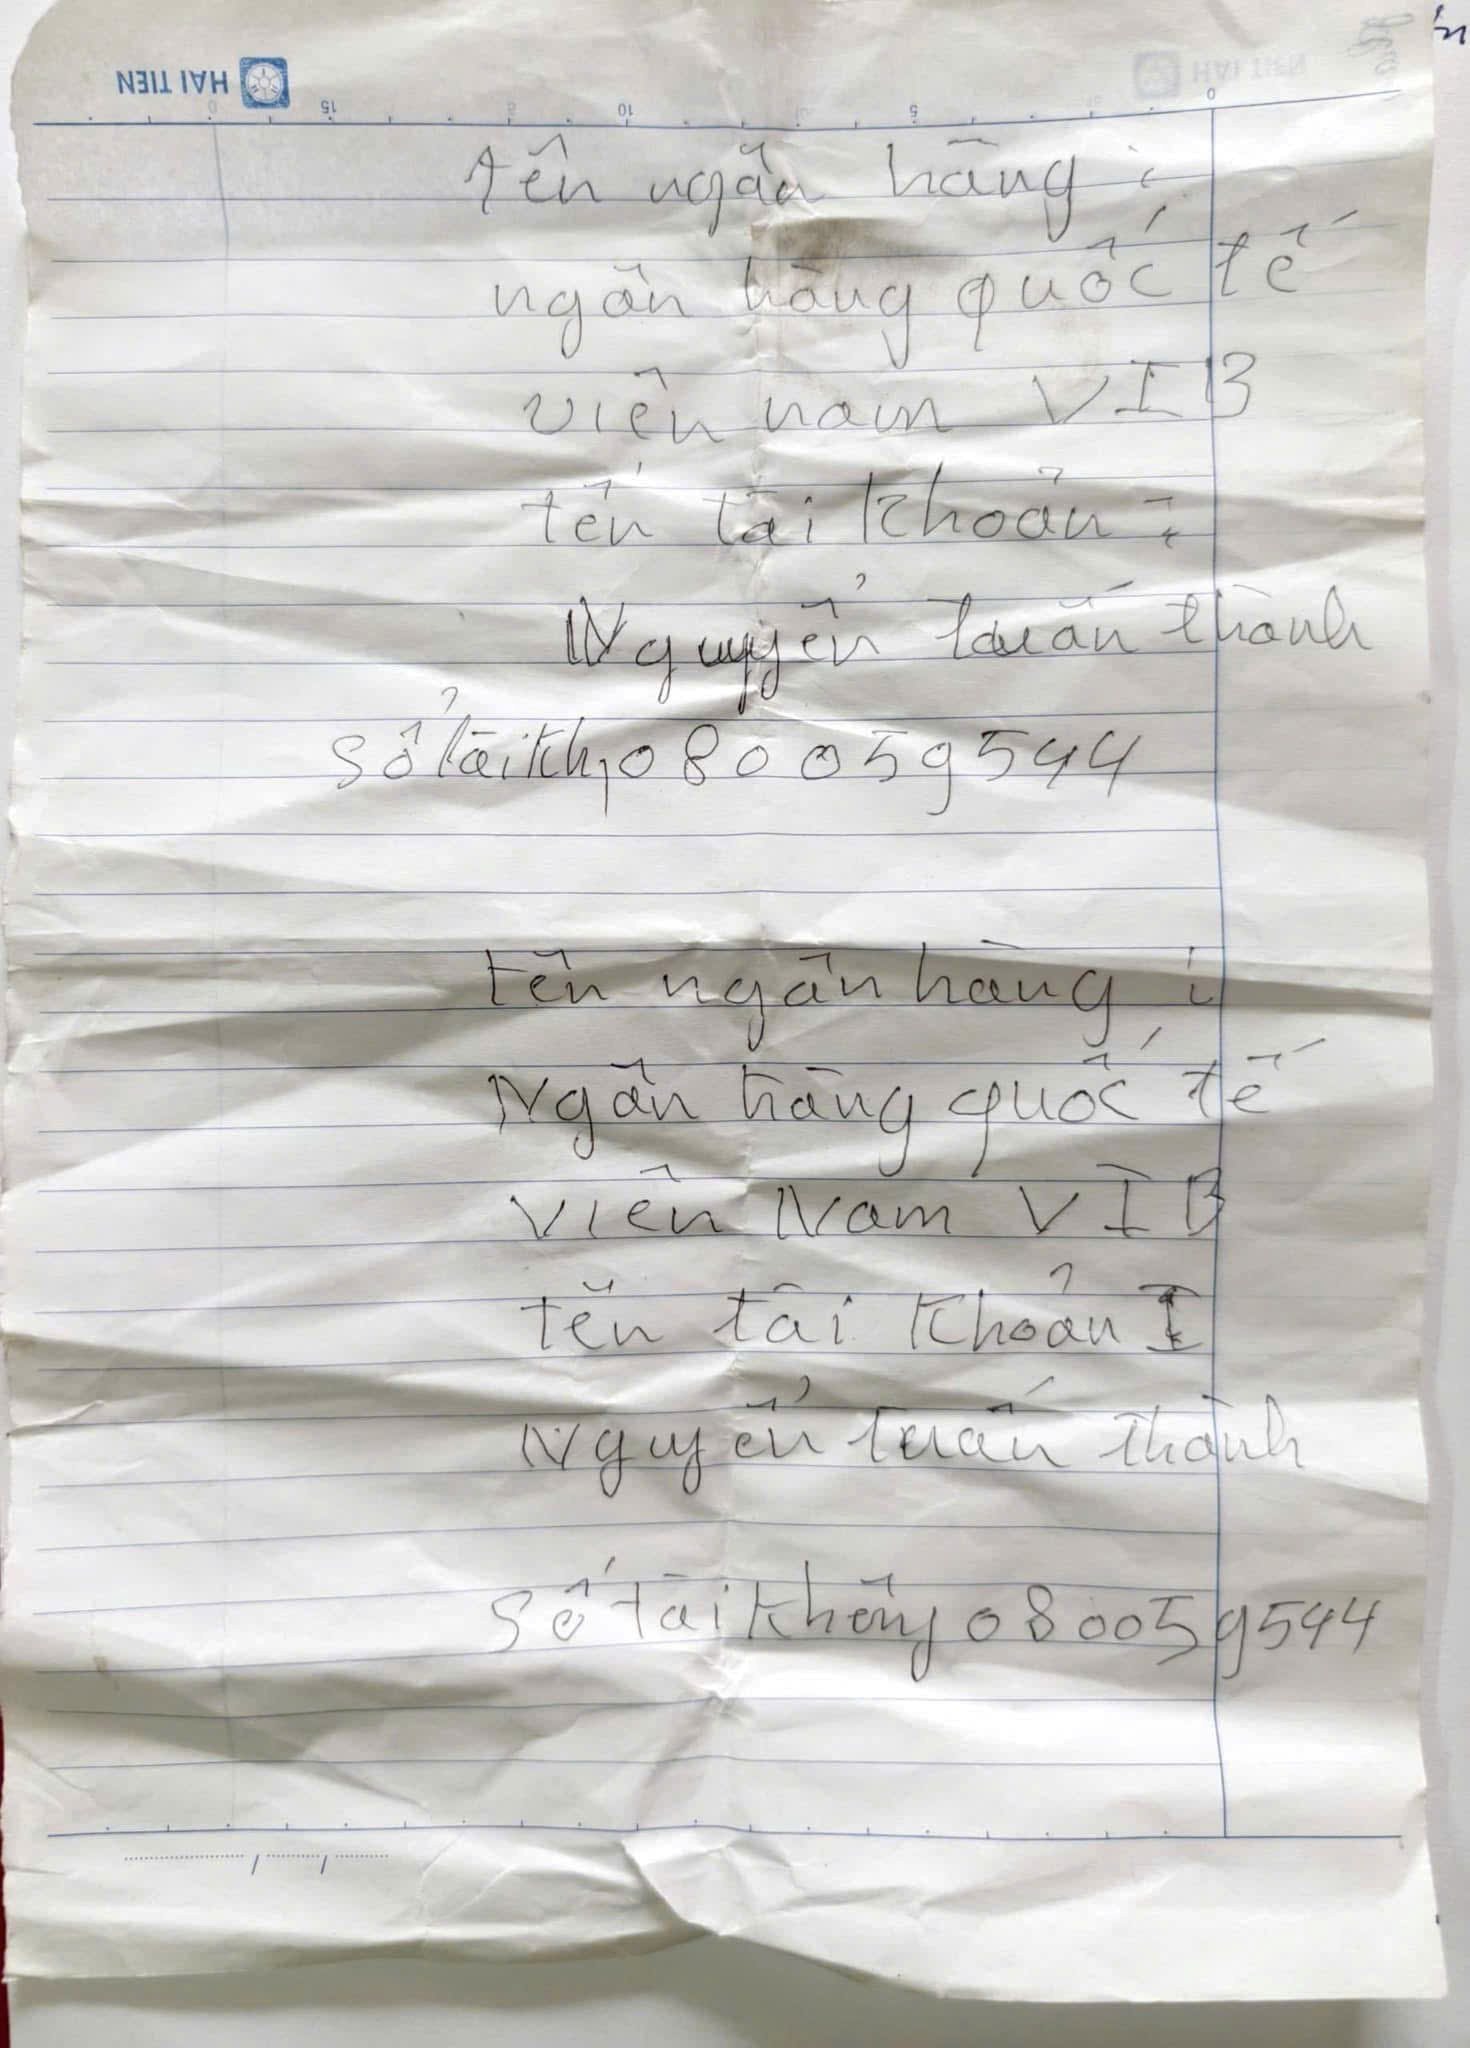 HẢI TIẾN
tên ngân hàng :
ngân hàng quốc tế
viên nam VIB
tến tài khoản :
Nguyyển tuấn thành
sổ tàikh, 0 8 0 0 5 9 5 4 4
tên ngân hàng :
Ngân hàng quốc tế
Viên Nam VIB
tên tài khoản I
Nguyển tuấn thành
số tài không 0 8 0 0 5 9 5 4 4